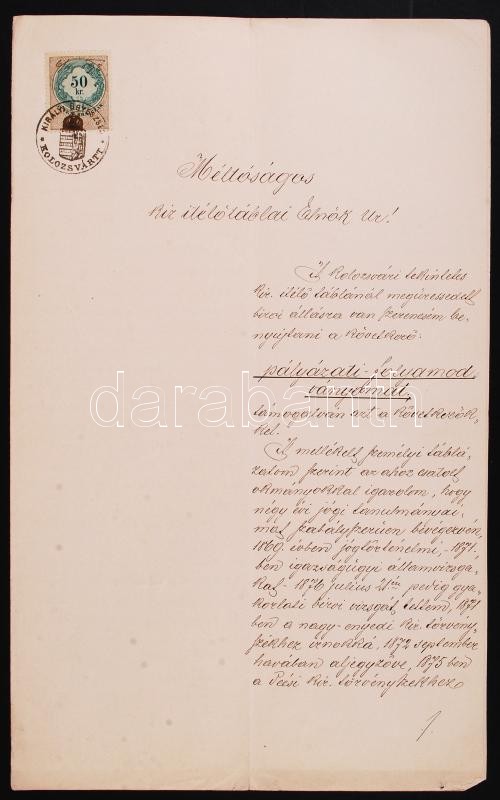 50
kr.
KIRÁLYI ÜGYÉSZSÉG
KOLOZSVÁRTT
Méltóságos
kir itélőtáblai Elnök Ur!
A kolozsvári tekintetes
kir. itélő táblánál megüresedett
birói állásra van szerencsém be-
nyujtani a következő:
pályázati folyamod
ványomat,
támogatván azt a következők-
kel.
A mellékelt személyi táblá-
zatom szerint az ahoz csatolt
okmányokkal igazolom, hogy
négy évi jogi tanulmányai-
mat szabályszerüen bevégezvén,
1869. évben jogtörténelmi, - 1871.
ben igazságügyi államvizsgá-
kat - 1876 julius 21én pedig gya-
korlati birói vizsgát tettem, 1871
ben a nagy-enyedi kir. törvény-
székhez irnokká, 1872 september
havában aljegyzőve, 1875 ben
a Pécsi kir. törvényszékhez
darabanth